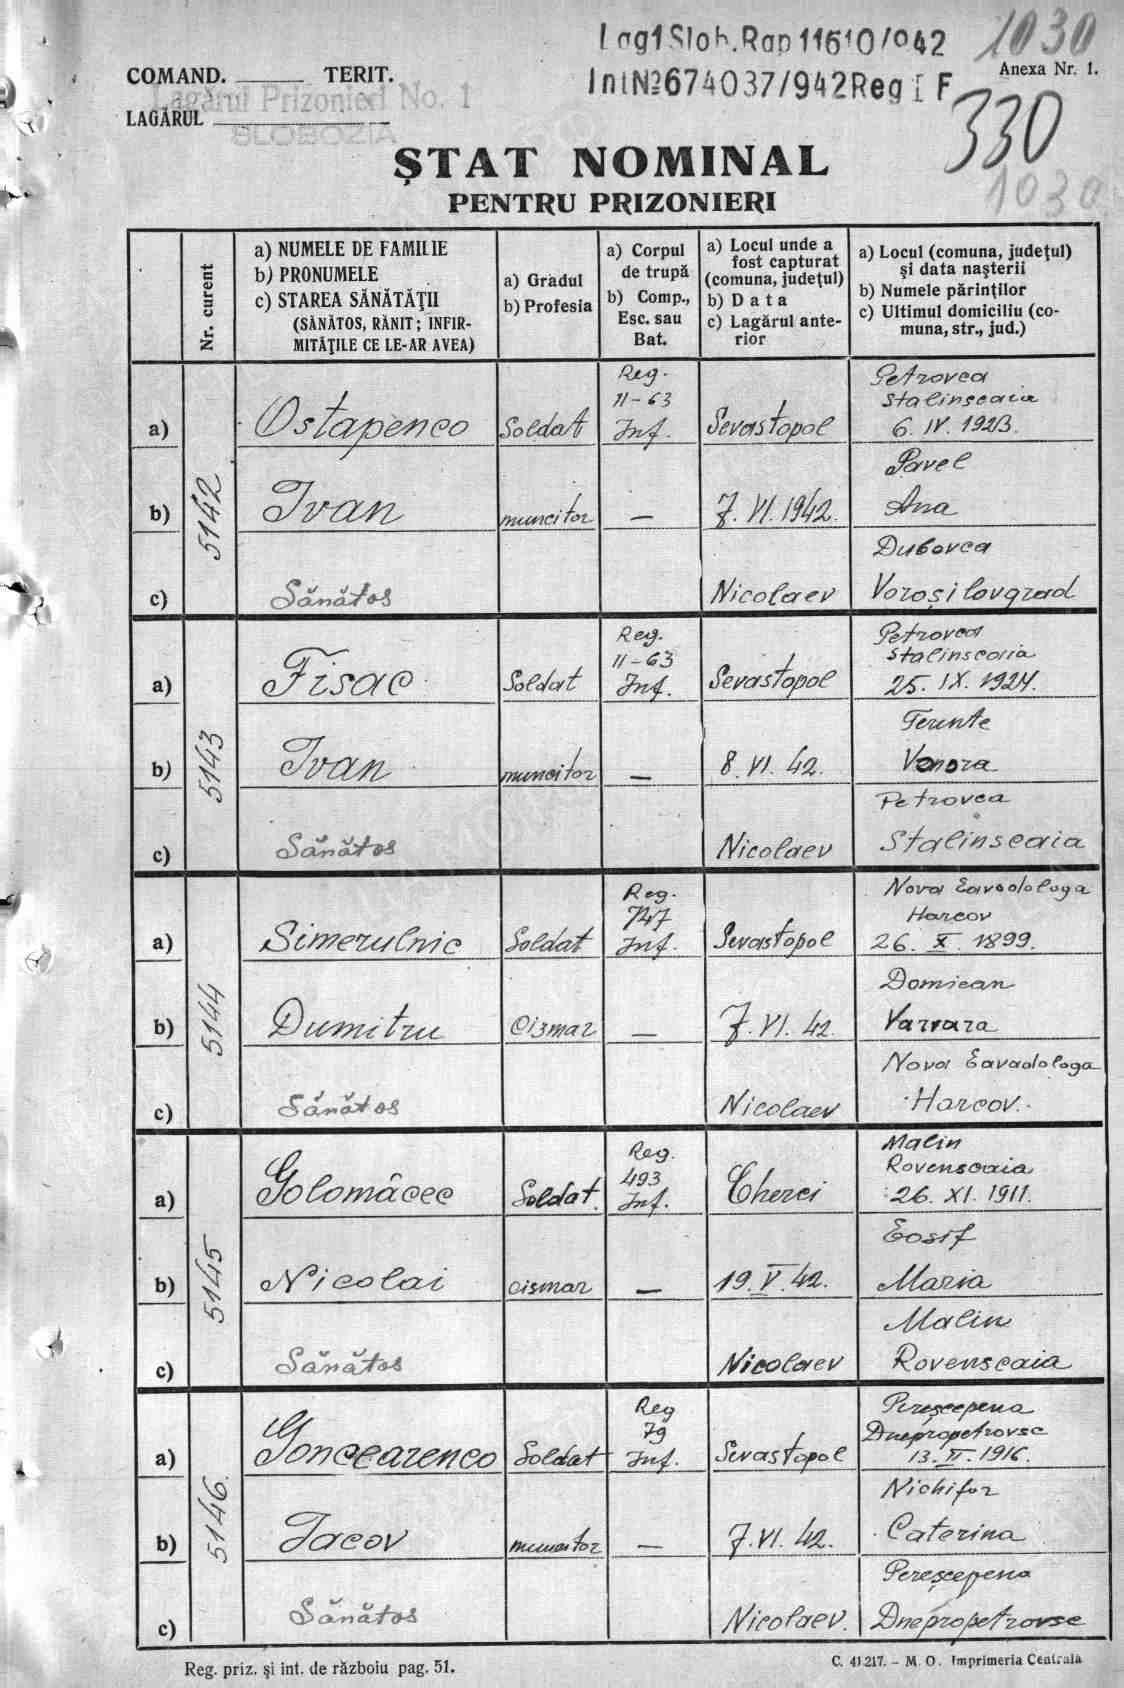 Lag1 Slob. Rap 11610/942
1030
Int№674037/942 Reg I F
COMAND. ______ TERIT.
Anexa Nr. 1.
Lagărul Prizonieri No. 1
LAGĂRUL
SLOBOZIA
330
1030
ŞTAT NOMINAL
PENTRU PRIZONIERI
Nr. curent
a) NUMELE DE FAMILIE
b) PRONUMELE
c) STAREA SĂNĂTĂŢII
(SĂNĂTOS, RĂNIT; INFIR-
MITĂŢILE CE LE-AR AVEA)
a) Gradul
b) Profesia
a) Corpul
de trupă
b) Comp.,
Esc. sau
Bat.
a) Locul unde a
fost capturat
(comuna, judeţul)
b) Data
c) Lagărul ante-
rior
a) Locul (comuna, judeţul)
şi data naşterii
b) Numele părinţilor
c) Ultimul domiciliu (co-
muna, str., jud.)
5142
a) Ostapenco
Soldat
Reg.
11-63
Inf.
Sevastopol
Petrovca
Stalinscaia
6. IV. 1923.
b) Ivan
muncitor
—
7. VI. 1942.
Pavel
Ana
c) Sănătos
Nicolaev
Dubovca
Voroşilovgrad
5143
a) Fisac
Soldat
Reg.
11-63
Inf.
Sevastopol
Petrovca
Stalinscaia
25. IX. 1924.
b) Ivan
muncitor
—
8. VI. 42.
Terente
c) Sănătos
Nicolaev
Petrovca
Stalinscaia
5144
a) Simerulnic
Soldat
Reg.
747
Inf.
Sevastopol
Nova
Harcov
26. X. 1899.
b) Dumitru
Cizmar
—
7. VI. 42.
Domican
Varvara
c) Sănătos
Nicolaev
Nova
Harcov.
5145
a) Golomâcec
Soldat.
Reg.
493
Inf.
Cherci
Malin
Rovenscaia
26. XI. 1911.
b) Nicolai
cismar
—
19. V. 42.
Eosif
Maria
c) Sănătos
Nicolaev
Malin
Rovenscaia
5146.
a) Goncearenco
Soldat
Reg
79
Inf.
Sevastopol
Pereşcepena
Dnepropetrovsc
13. II. 1916.
b) Iacov
muncitor
—
7. VI. 42.
Nichifor
Caterina
c) Sănătos
Nicolaev.
Pereşcepena
Dnepropetrovsc
Reg. priz. şi int. de războiu pag. 51.
C. 41.217. – M. O. Imprimeria Centrala